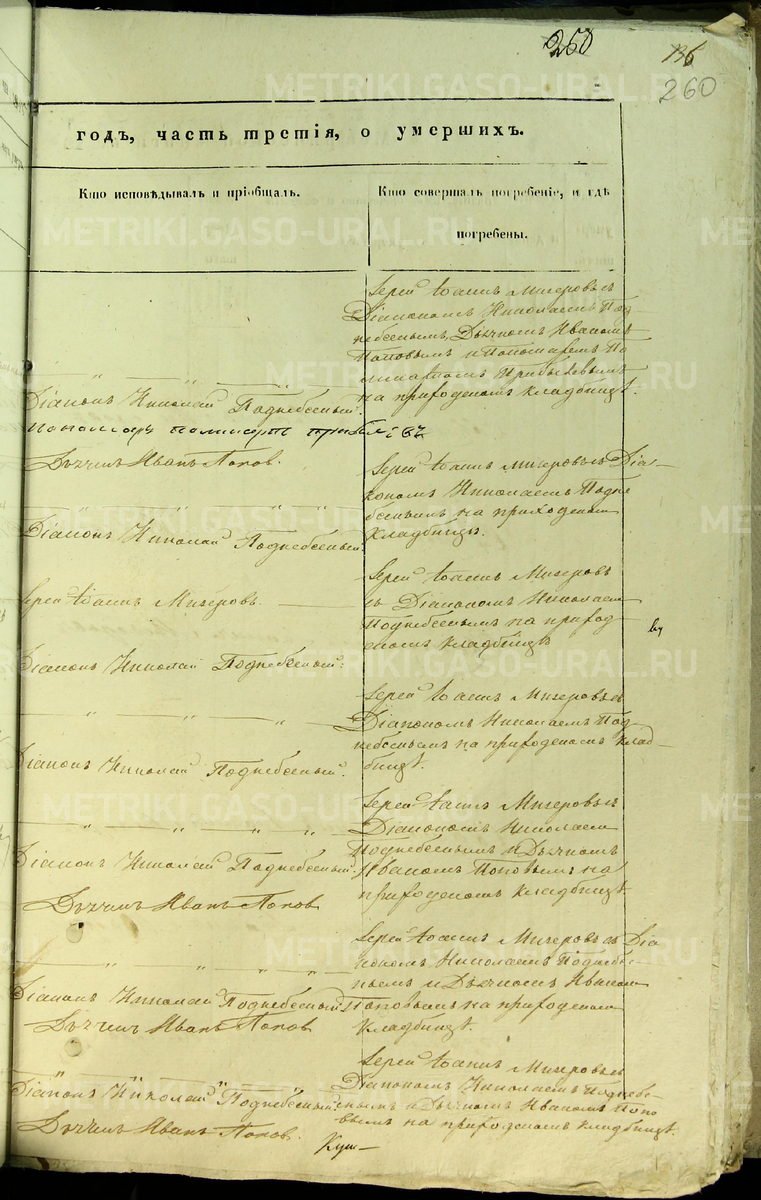 260
136
260
METRIKI.GASO-URAL.RU
годъ, часть третія, о умершихъ.
Кто исповѣдывалъ и пріобщалъ.
Кто совершалъ погребеніе, и гдѣ
погребены.
Іерей Іоаннъ Мизеровъ съ
Діакономъ Николаемъ Под
небеснымъ, Дьячкомъ Иваномъ
Поповымъ и Пономаремъ
на приходскомъ кладбищѣ.
Діаконъ Николай Поднебесный.
Дьячекъ Иванъ Попов.
Іерей Іоаннъ Мизеровъ съ Діа-
кономъ Николаемъ Подне
беснымъ на приходскомъ
кладбищѣ.
Діаконъ Николай Поднебесный
Іерей Іоаннъ Мизеровъ
съ Діакономъ Николаемъ
Поднебеснымъ на приход
скомъ кладбищѣ
Іерей Іоаннъ Мизеровъ.
Діаконъ Николай Поднебесный.
Іерей Іоаннъ Мизеровъ съ
Діакономъ Николаемъ Под
небеснымъ на приходскомъ клад-
бищѣ.
Діаконъ Николай Поднебесный.
Іерей Іоаннъ Мизеровъ съ
Діакономъ Николаемъ
Поднебеснымъ и Дьячкомъ
Иваномъ Поповымъ на
приходскомъ кладбищѣ
Діаконъ Николай Поднебесный.
Дьячекъ Иванъ Попов
Іерей Іоаннъ Мизеровъ съ Діа
кономъ Николаемъ Поднебе-
снымъ и Дьячкомъ Иваномъ
Поповымъ на приходскомъ
кладбищѣ.
Діаконъ Николай Поднебесный
Дьячекъ Иванъ Попов
Іерей Іоаннъ Мизеровъ съ
Діакономъ Николаемъ Поднебе-
снымъ и Дьячкомъ Иваномъ Попо
вымъ на приходскомъ кладбищѣ.
Діаконъ Николай Поднебесный
Дьячекъ Иванъ Попов.